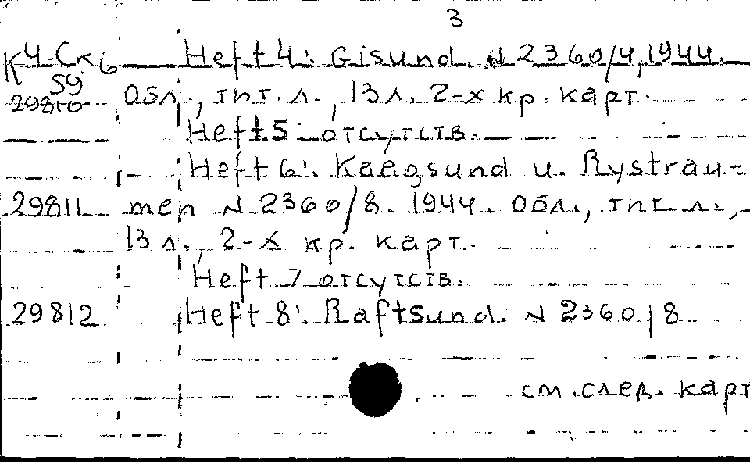 3
К4 Ск6 Heft 4: Gisund. N 2360/4, 1944.
59
29810 Обл., тит. л., 13 л. 2-х кр. карт.
Heft 5 отсутств.
Heft 6: Kaegsund u. Rystrau-
29811 men N 2360/8. 1944. Обл., тит. л.,
13 л., 2-х кр. карт.
Heft 7 отсутств.
29812 Heft 8: Raftsund. N 2360/8
см. след. карт